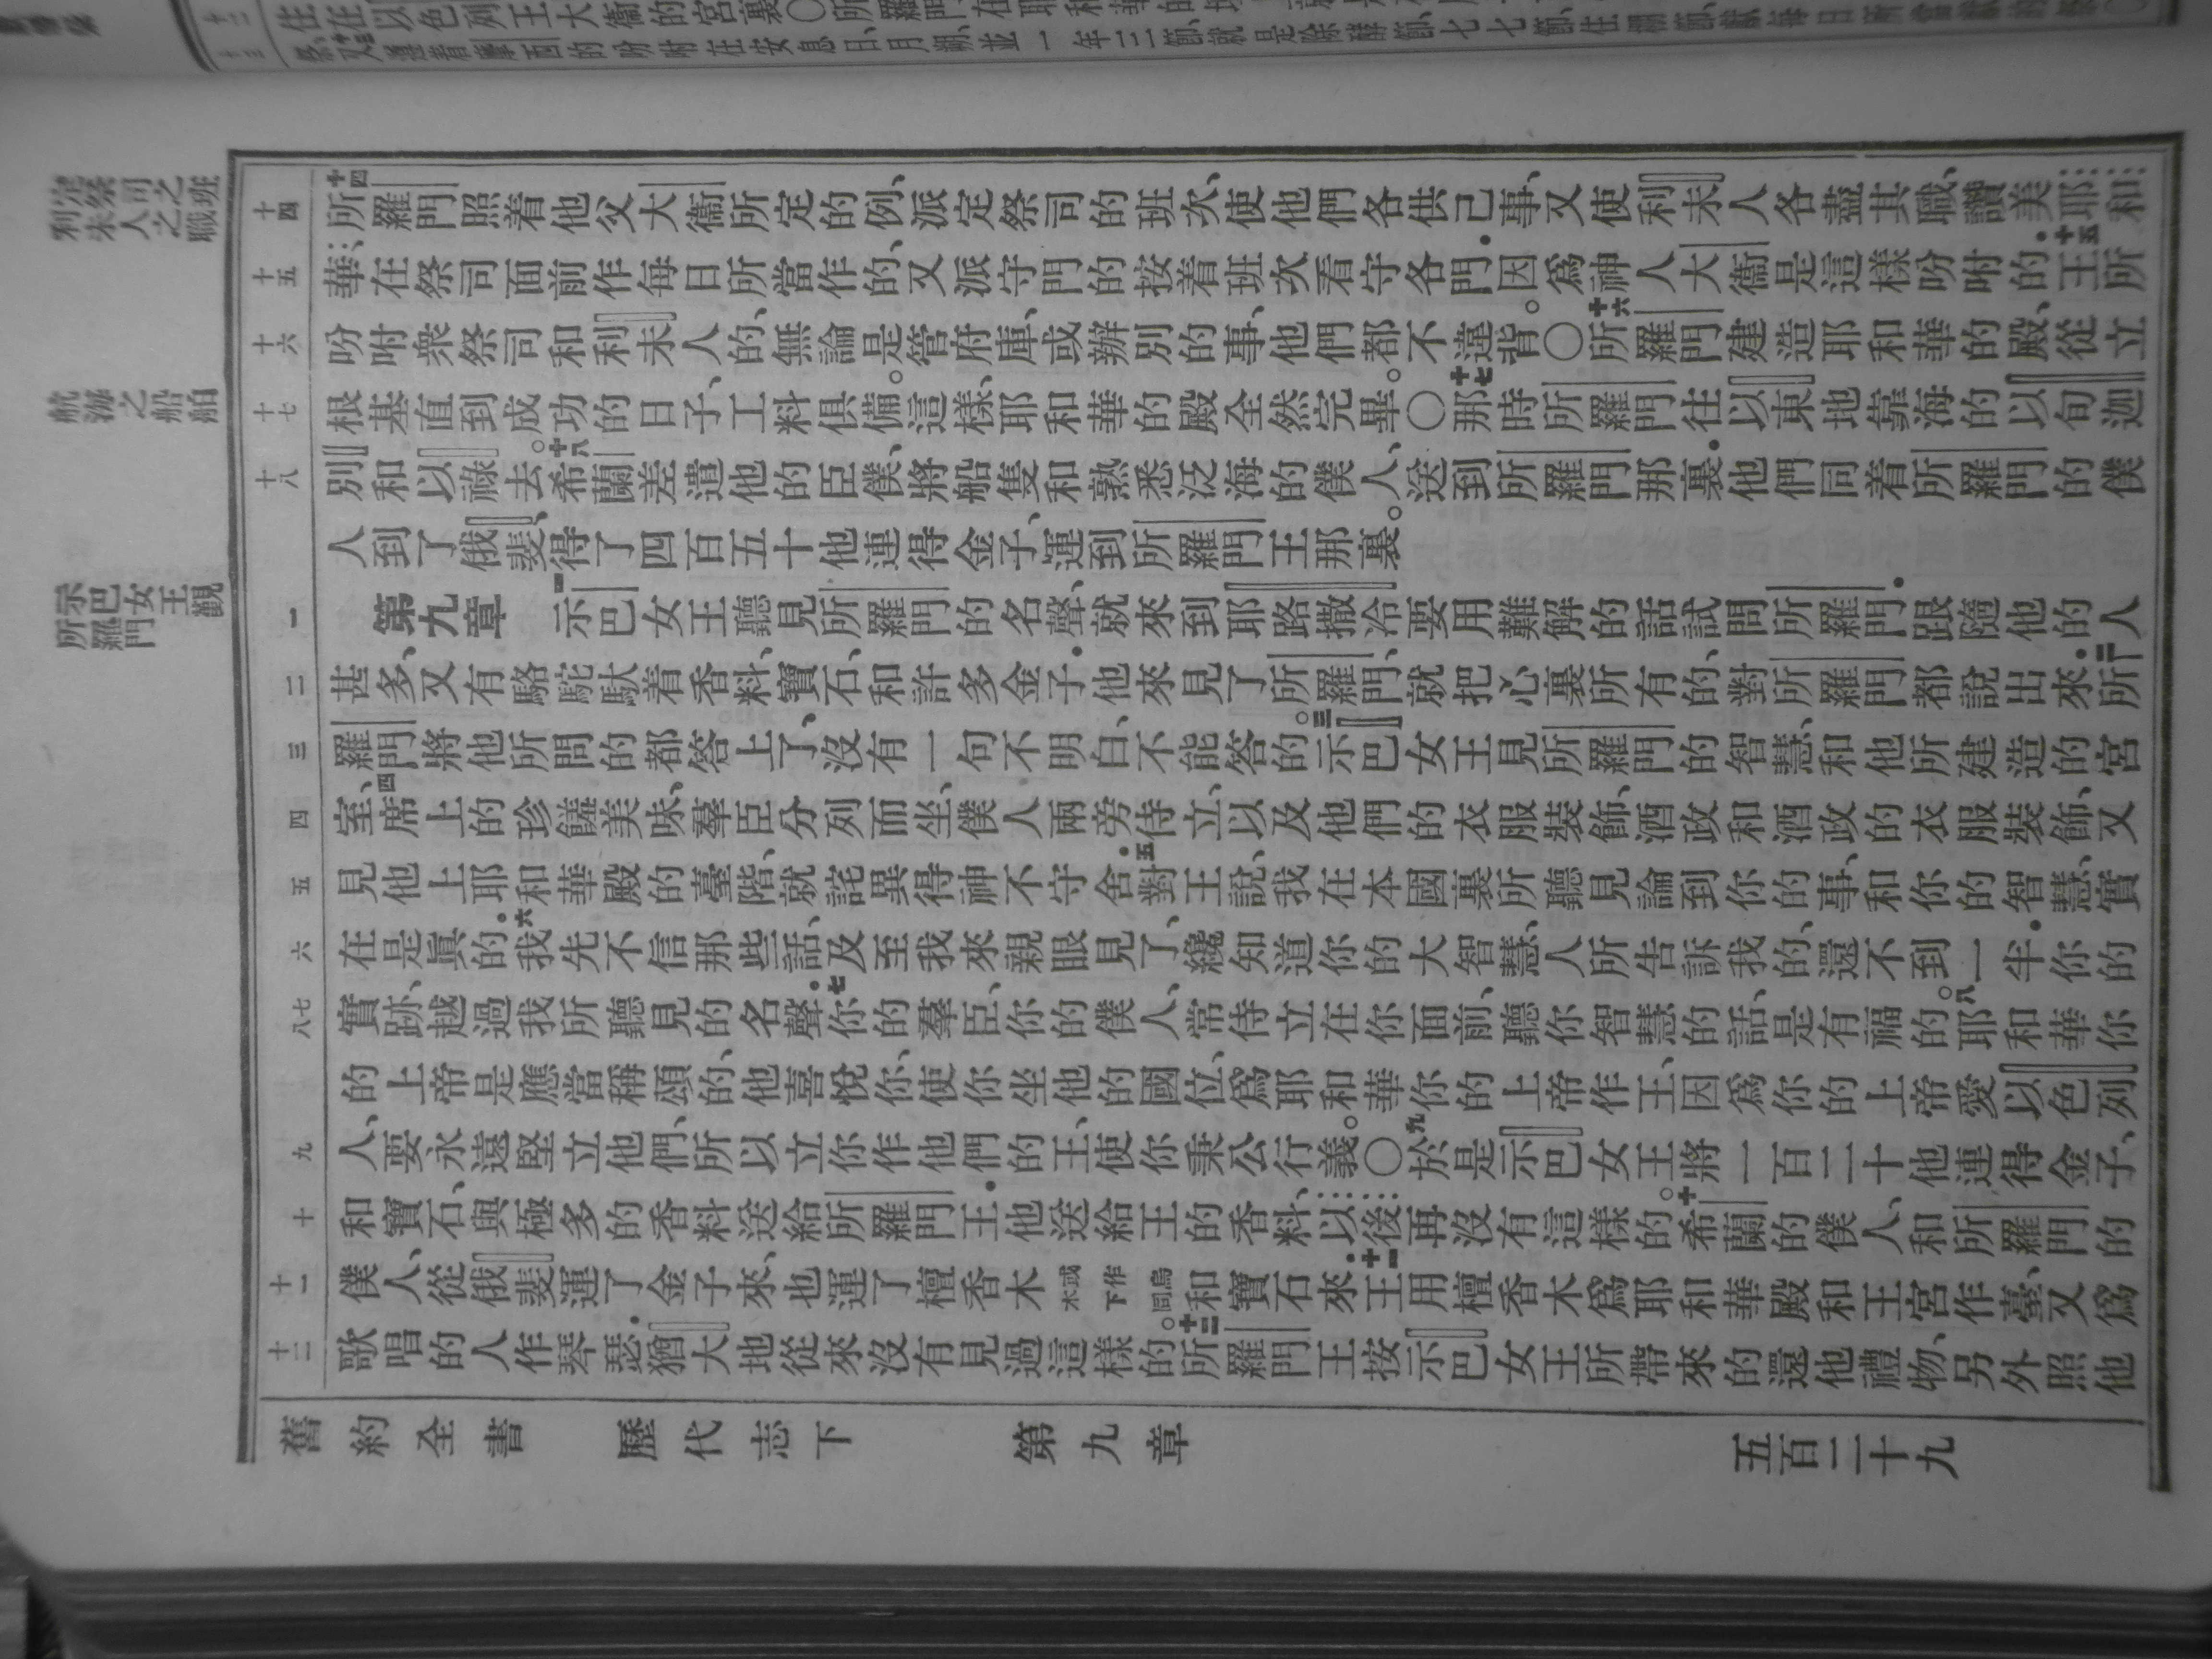 在以色列王大衛的宮裏〇所羅門在耶和華的
十三又遵着摩西的吩咐在安息日、月朔、並一年三節、就是除酵節、七七節、住棚節、獻每日所當獻的
定祭司之班
利未人之職
航海之船舶
示巴女王觀
所羅門
十四
十四所羅門照着他父大衛所定的例、派定祭司的班次、使他們各供己事、又使利未人各盡其職、讚美耶和
十五
華、在祭司面前作每日所當作的、又派守門的按着班次看守各門．因爲神人大衛是這樣吩咐的．十五王所
十六
吩咐衆祭司和利未人的、無論是管府庫、或辦別的事、他們都不違背。〇十六所羅門建造耶和華的殿、從立
十七
根基直到成功的日子、工料俱備。這樣、耶和華的殿全然完畢。〇十七那時所羅門往以東地靠海的以旬迦
十八
別和以祿去。十八希蘭差遣他的臣僕、將船隻和熟悉泛海的僕人、送到所羅門那裏．他們同着所羅門的僕
人到了俄斐、得了四百五十他連得金子、運到所羅門王那裏。
一
第九章 一示巴女王聽見所羅門的名聲、就來到耶路撒冷要用難解的話試問所羅門．跟隨他的人
二
甚多、又有駱駝馱着香料、寶石、和許多金子．他來見了所羅門、就把心裏所有的、對所羅門都說出來．二所
三
羅門將他所問的都答上了、沒有一句不明白、不能答的。三示巴女王見所羅門的智慧、和他所建造的宮
四
室、四席上的珍饈美味、羣臣分列而坐、僕人兩旁侍立、以及他們的衣服裝飾、酒政和酒政的衣服裝飾、又
五
見他上耶和華殿的臺階、就詫異得神不守舍．五對王說、我在本國裏所聽見論到你的事、和你的智慧、實
六
在是眞的．六我先不信那些話、及至我來親眼見了、纔知道你的大智慧、人所告訴我的、還不到一半．你的
八七
實跡、越過我所聽見的名聲．七你的羣臣、你的僕人、常侍立在你面前、聽你智慧的話、是有福的。八耶和華你
的上帝是應當稱頌的、他喜悅你、使你坐他的國位、爲耶和華你的上帝作王、因爲你的上帝愛以色列
九
人、要永遠堅立他們、所以立你作他們的王、使你秉公行義。〇九於是示巴女王將一百二十他連得金子、
十
和寶石、與極多的香料送給所羅門王．他送給王的香料、以後再沒有這樣的。十希蘭的僕人、和所羅門的
十一
僕人、從俄斐運了金子來、也運了檀香木或作烏木下同和寶石來．十一王用檀香木爲耶和華殿和王宮作臺、又爲
十二
歌唱的人作琴瑟．猶大地從來沒有見過這樣的。十二所羅門王按示巴女王所帶來的還他禮物、另外照他
舊約全書　歷代志下　第九章　五百二十九